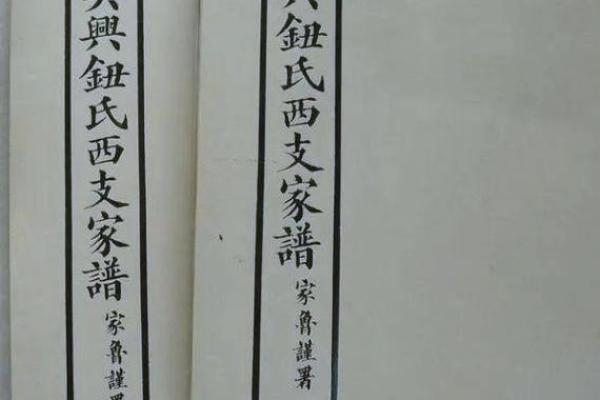 鈕氏西支家譜
家魯謹署
興鈕氏西支家譜
家魯謹署